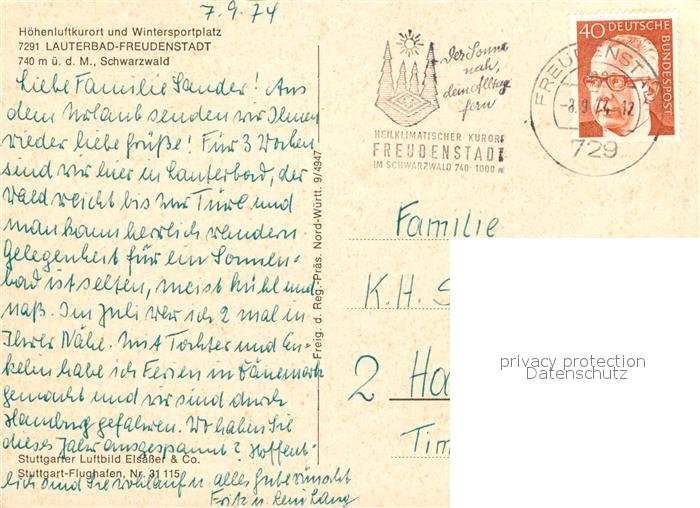 7.9.74
Höhenluftkurort und Wintersportplatz
7291 LAUTERBAD-FREUDENSTADT
740 m ü. d. M., Schwarzwald
Liebe Familie Sander! Aus
dem Urlaub senden wir Ihnen
wieder liebe Grüße! Für 3 Wochen
sind wir hier in Lauterbad, der
Wald reicht bis zur Türe und
man kann herrlich wandern.
Gelegenheit für ein Sonnen-
bad ist selten, meist kühl und
naß. Im Juli war ich 2 mal in
Ihrer Nähe. Mit Tochter und En-
kelin habe ich Ferien in Dänemark
gemacht und wir sind durch
Hamburg gefahren. Wo haben Sie
dieses Jahr ausgespannt? Hoffent-
lich sind Sie wohlauf u. alles Gute wünscht
Fritz u. Leni Lang
Stuttgarter Luftbild Elsäßer & Co.
Stuttgart-Flughafen, Nr. 31 115
Freig. d. Reg.-Präs. Nord-Württ. 9/4947
Der Sonne
nah,
dem Alltag
fern
HEILKLIMATISCHER KURORT
FREUDENSTADT
IM SCHWARZWALD 740-1000 m
FREUDENSTADT
-8.9.74-12
729
40 DEUTSCHE BUNDESPOST
Familie
K.H. S
2 Ha
Tim
privacy protection
Datenschutz